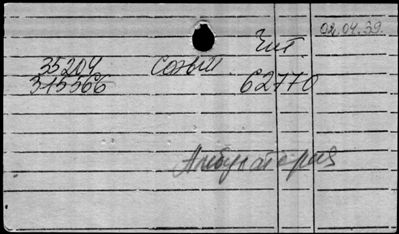 02.04.39.
Чит
35204 созыв
315566 62770
Амбулатория